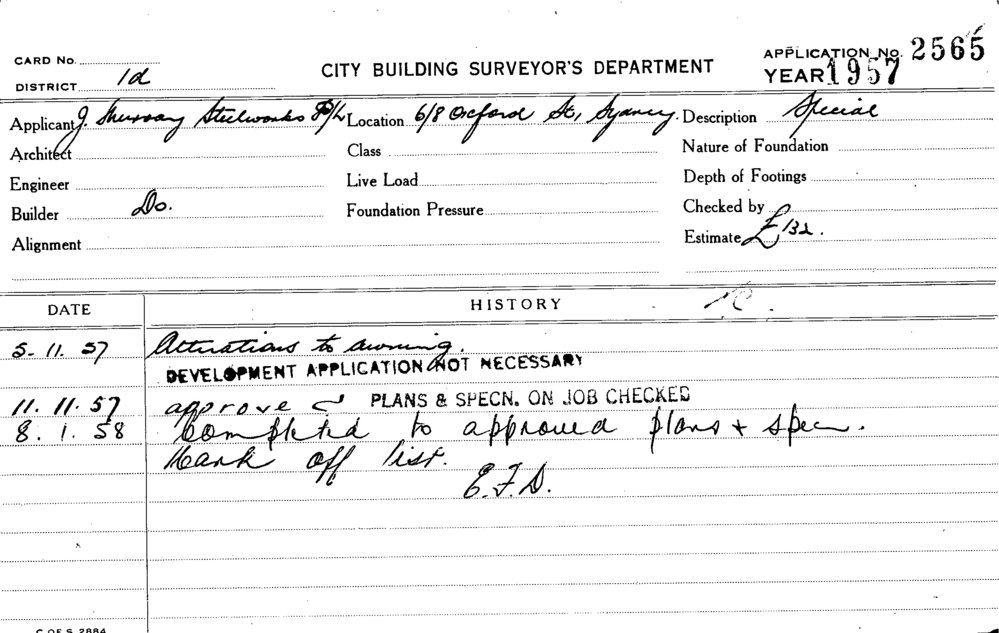 CARD No.
DISTRICT 1d
CITY BUILDING SURVEYOR'S DEPARTMENT
APPLICATION No. 2565
YEAR 1957
Applicant J. Murray Steelworks P/L Location 6/8 Oxford St, Sydney. Description Special
Architect Class Nature of Foundation
Engineer Live Load Depth of Footings
Builder Do. Foundation Pressure Checked by
Alignment Estimate £132.
DATE HISTORY
5. 11. 57 Alterations to awning.
DEVELOPMENT APPLICATION NOT NECESSARY
11. 11. 57 approve PLANS & SPECN. ON JOB CHECKED
8. 1. 58 Completed to approved plans + specn.
Mark off list.
E.F.D.
C OF S 2884